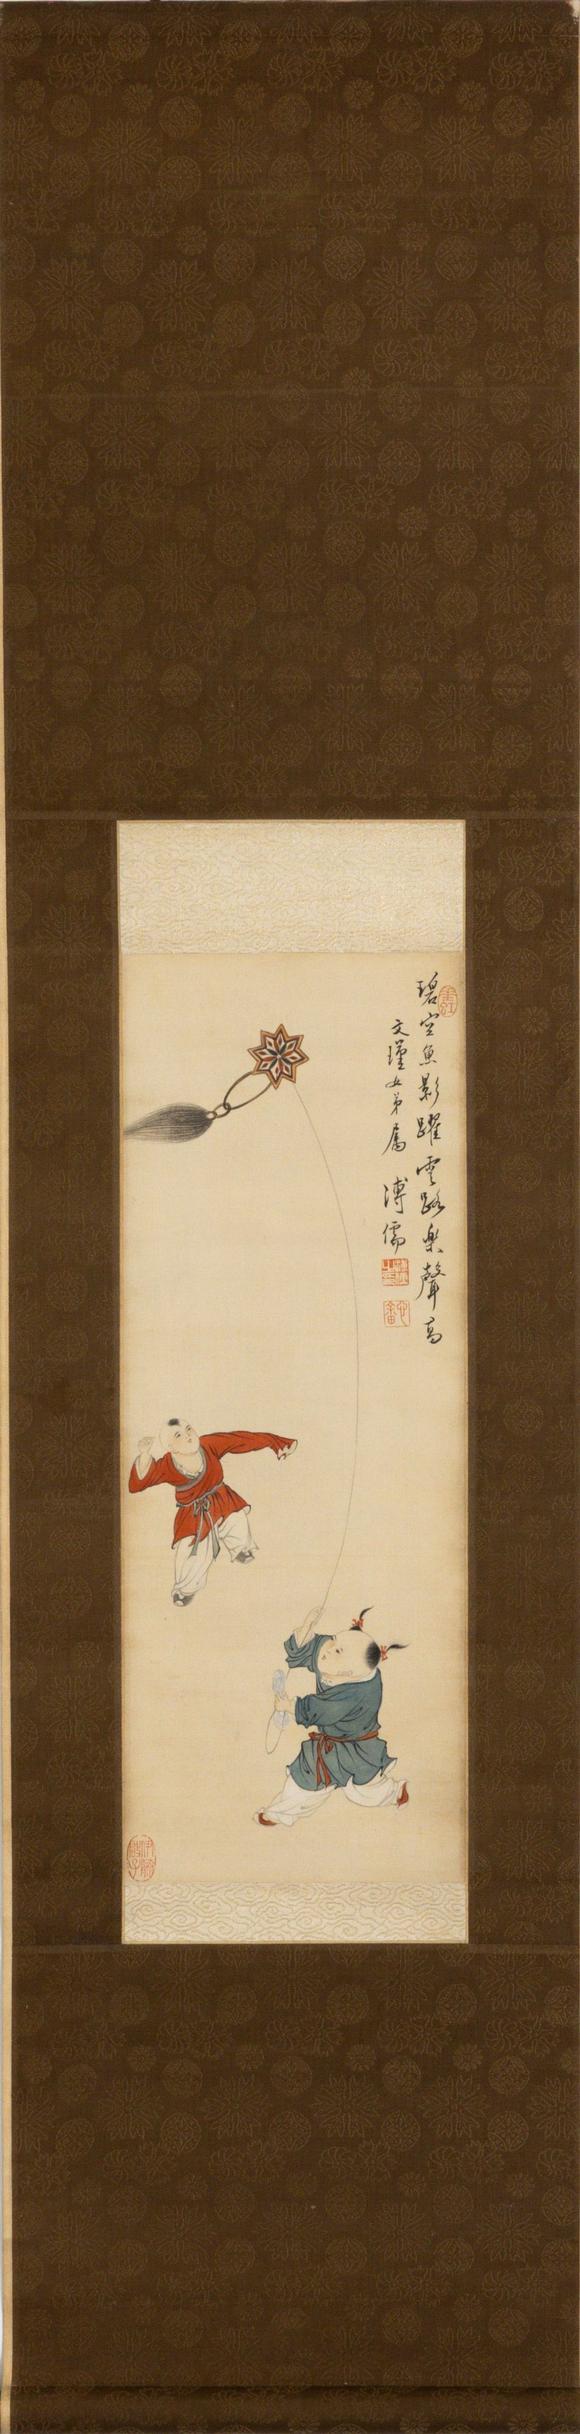 碧空魚影躍雲路樂聲高
文瑾女弟屬 溥儒